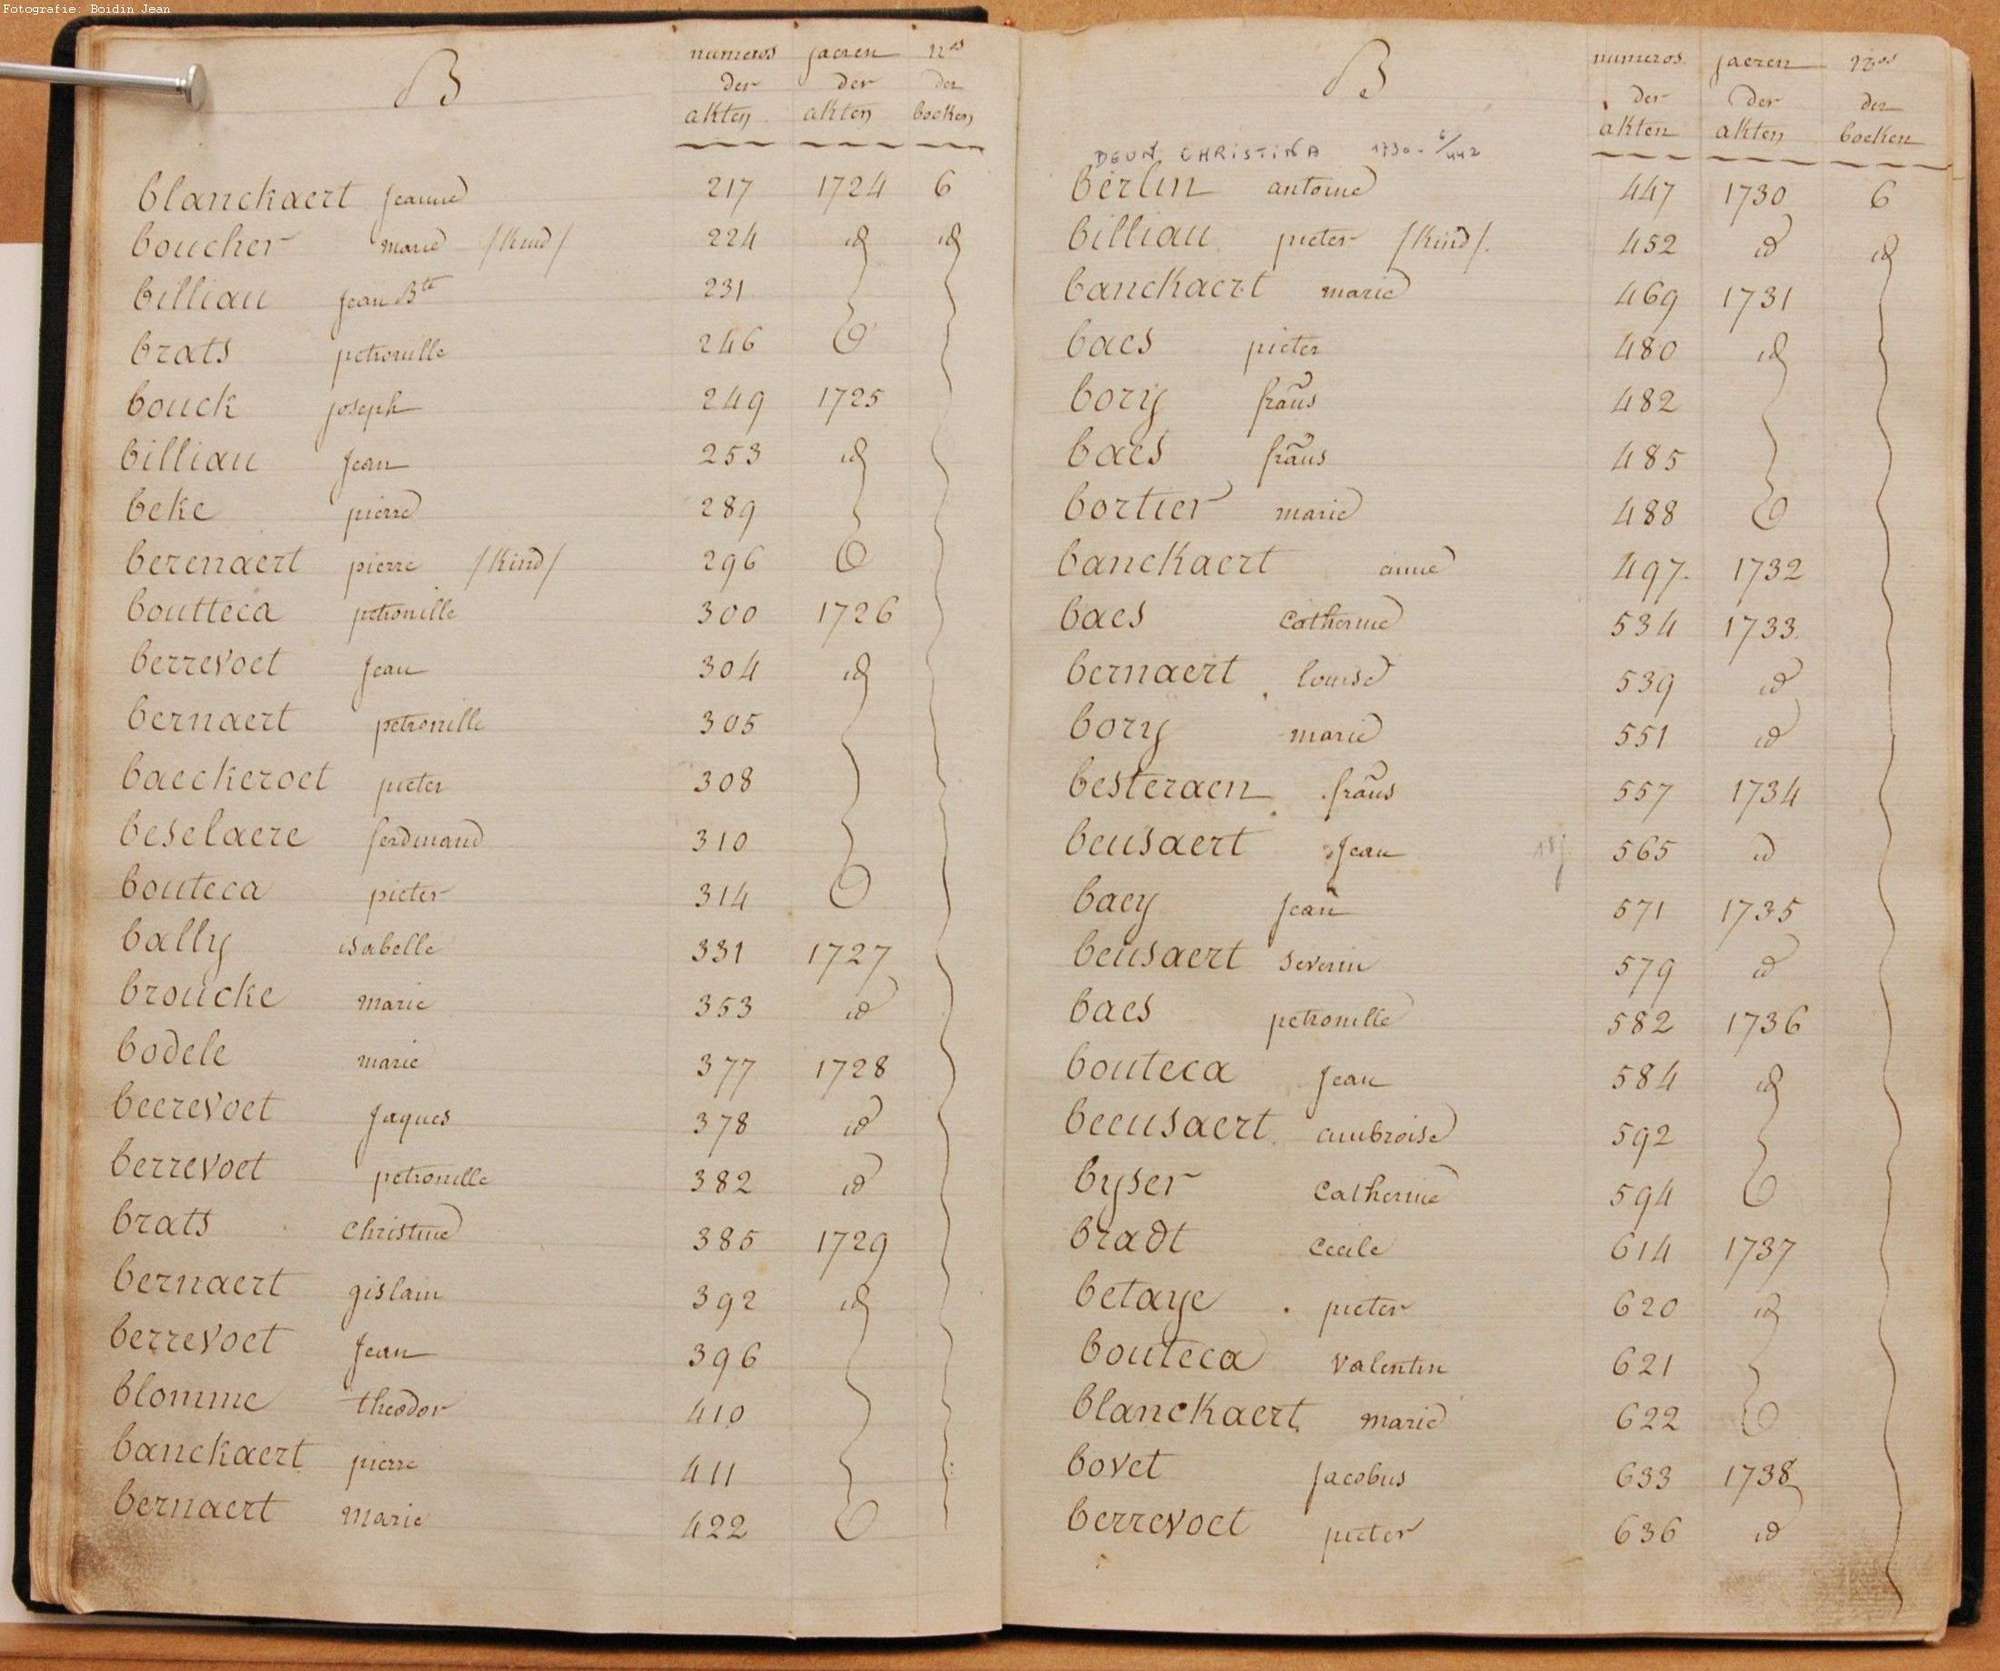 Fotografie: Boidin Jean
B numeros jaeren nos
der der der
akten akten boeken
blanckaert jeanne 217 1724 6
boucher marie /kind/ 224 id id
billiau jean Bte 231
brats petronille 246
bouck joseph 249 1725
billiau jean 253 id
beke pierre 289
berenaert pierre /kind/ 296
boutteca petronille 300 1726
berrevoet jean 304 id
bernaert petronille 305
baeckeroet pieter 308
beselaere ferdinand 310
bouteca pieter 314
bally isabelle 331 1727
broucke marie 353 id
bodele marie 377 1728
beerevoet jaques 378 id
berrevoet petronille 382 id
brats christine 385 1729
bernaert gislain 392 id
berrevoet jean 396
blomme theodor 410
banckaert pierre 411
bernaert marie 422
B numeros jaeren nos
der der der
akten akten boeken
DEUN CHRISTINA 1730 - 6/442
berlin antoine 447 1730 6
billiau pieter /kind/. 452 id id
banckaert marie 469 1731
baes pieter 480 id
bory frans 482
baes frans 485
bortier marie 488
banckaert anne 497. 1732
baes catherine 534 1733.
bernaert louise 539 id
bory marie 551 id
besteraen frans 557 1734
beusaert jean 565 id
baey jean 571 1735
beusaert severin 579 id
baes petronille 582 1736
bouteca jean 584 id
beeusaert ambroise 592
byser catherine 594
bradt cecile 614 1737
betaye pieter 620 id
bouteca valentin 621
blanckaert marie 622
bovet jacobus 633 1738
berrevoet pieter 636 id